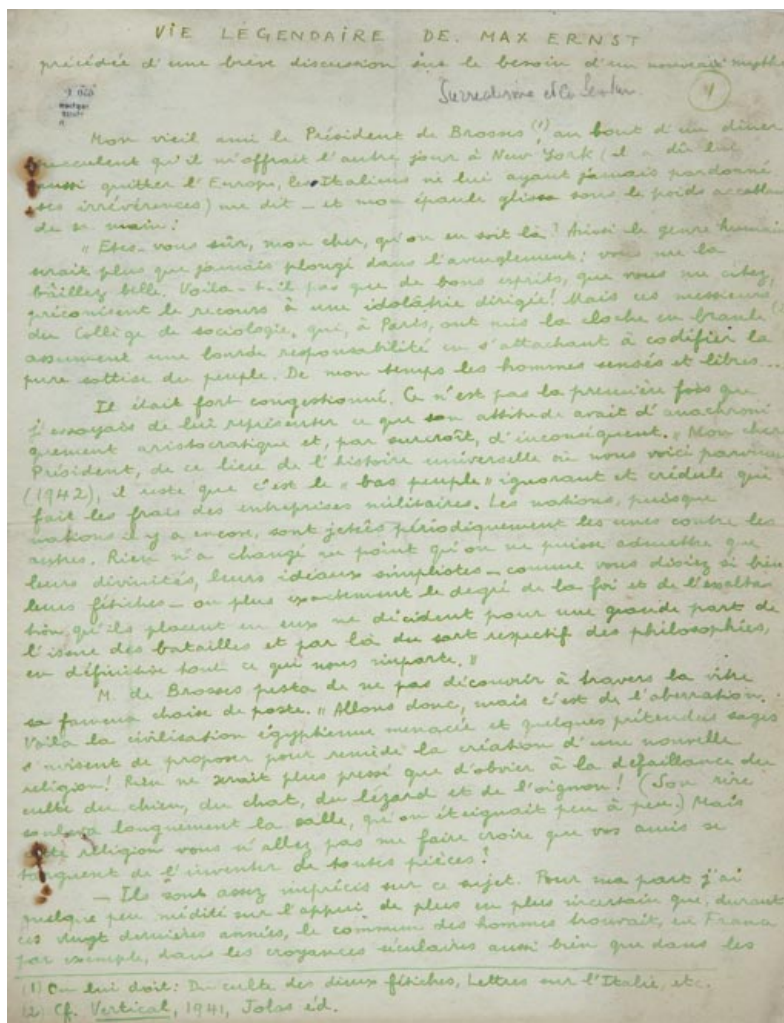 VIE LÉGENDAIRE DE MAX ERNST
précédée d'une brève discussion sur le besoin d'un nouveau mythe
Surréalisme et la
1
Mon vieil ami le Président de Brosses (1), au bout d'un dîner
succulent qu'il m'offrait l'autre jour à New York (il a dû lui
aussi quitter l'Europe, les Italiens ne lui ayant jamais pardonné
ses irrévérences) me dit — et mon épaule glissa sous le poids accablant
de sa main :
« Êtes-vous sûr, mon cher, qu'on en soit là ? Ainsi le genre humain
serait plus que jamais plongé dans l'aveuglement ; vous me la
bâillez belle. Voilà-t-il pas que de bons esprits, que vous me citez,
préconisent le recours à une idolâtrie dirigée ! Mais ces messieurs
du Collège de sociologie, qui, à Paris, ont mis la cloche en branle (2)
assument une lourde responsabilité en s'attachant à codifier la
pure sottise du peuple. De mon temps les hommes sensés et libres...
Il était fort congestionné. Ce n'est pas la première fois que
j'essayais de lui représenter ce que son attitude avait d'anachroni-
quement aristocratique et, par surcroît, d'inconséquent. « Mon cher
Président, de ce lieu de l'histoire universelle où nous voici parvenus
(1942), il reste que c'est le « bas peuple » ignorant et crédule qui
fait les frais des entreprises militaires. Les nations, puisque
nations il y a encore, sont jetées périodiquement les unes contre les
autres. Rien n'a changé au point qu'on ne puisse admettre que
leurs divinités, leurs idéaux simplistes — comme vous disiez si bien
leurs fétiches — ou plus exactement le degré de la foi et de l'exalta-
tion qu'ils placent en eux ne décident pour une grande part de
l'issue des batailles et par là du sort respectif des philosophies,
en définitive tout ce qui nous importe. »
M. de Brosses pesta de ne pas découvrir à travers la vitre
sa fameuse chaise de poste. « Allons donc, mais c'est de l'aberration.
Voilà la civilisation égyptienne menacée et quelques prétendus sages
s'avisent de proposer pour remède la création d'une nouvelle
religion ! Rien ne serait plus pressé que d'obvier à la défaillance du
culte du chien, du chat, du lézard et de l'oignon ! (Son rire
souleva longuement la salle, qu'on éteignait peu à peu.) Mais
cette religion vous n'allez pas me faire croire que vos amis se
targuent de l'inventer de toutes pièces !
— Ils sont assez imprécis sur ce sujet. Pour ma part j'ai
quelque peu médité sur l'appui de plus en plus incertain que, durant
ces vingt dernières années, le commun des hommes trouvait, en France
par exemple, dans les croyances séculaires aussi bien que dans les
(1) On lui doit : Du culte des dieux fétiches, Lettres sur l'Italie, etc.
(2) Cf. Vertical, 1941, Jolas éd.